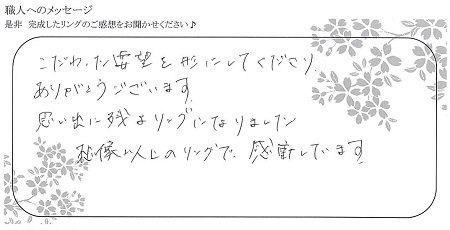 職人へのメッセージ
是非 完成したリングのご感想をお聞かせください♪
こだわった要望を形にしてくださり、
ありがとうございます。
思い出に残るリングになりました
想像以上のリングで、感動しています。